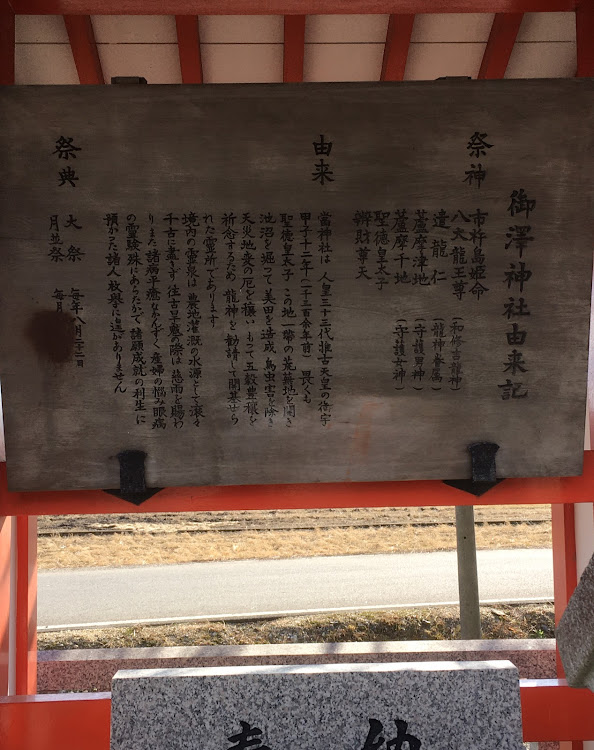 御澤神社由来記
祭神
市杵島姫命
八大龍王尊（和修吉龍神）
遣龍仁（龍神眷属）
蘆摩津地（守護男神）
蘆摩千地（守護女神）
聖徳皇太子
辨財尊天
由来
當神社は 人皇三十三代推古天皇の御宇
甲子十二年（一千三百余年前）畏くも
聖徳皇太子 この地一帯の荒蕪地を開き
池沼を掘って 美田を造成 鳥虫害を除き
天災地変の厄を攘い もって五穀豊穣を
祈念するため 龍神を勧請して開基せら
れた霊所であります
境内の霊泉は 農地灌漑の水源として滾々
千古に盡きず 往古旱魃の際は 慈雨を賜わ
りまた 諸病平癒なかんずく産婦の悩み眼病
の霊験殊にあらたかで 諸願成就の利生に
預かった諸人枚挙に遑がありません
祭典
大祭 毎年八月二十二日
月並祭 毎月
奉納